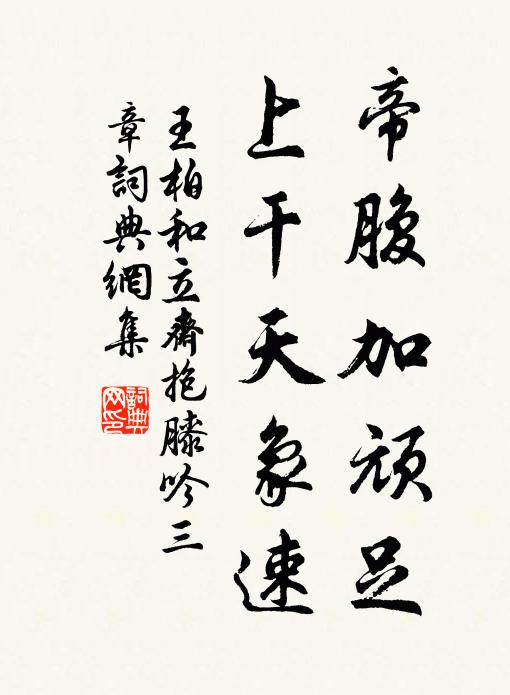 帝腹加頑足
上干天象速
王柏和立齋抱膝吟三
章詞典網集
詞典网印